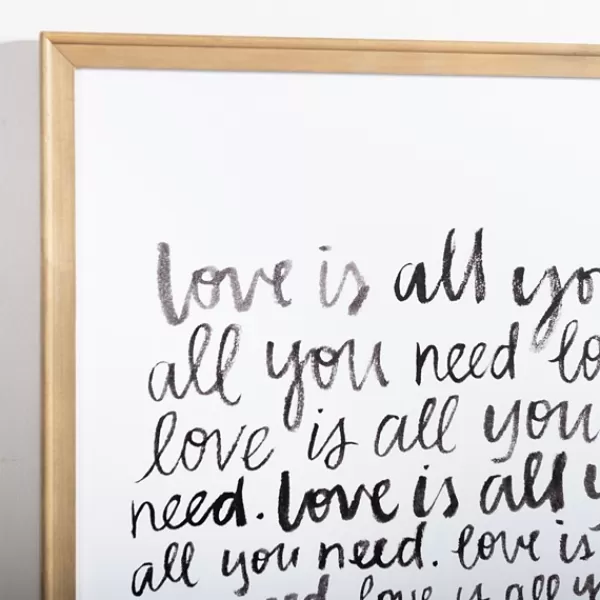 love is all yo
all you need lo
love is all you
need. love is all y
all you need. love is
need. love is all y